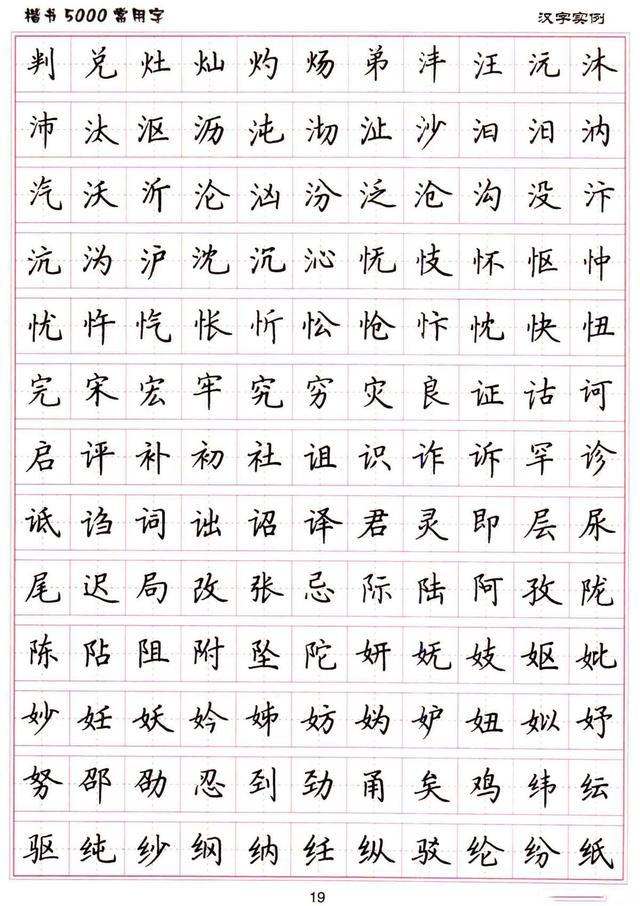 楷书5000常用字 汉字实例
判兑灶灿灼炀弟沣汪沅沐
沛汰沤沥沌沏沚沙汩汨汭
汽沃沂沦汹汾泛沧沟没汴
沆沩沪沈沉沁怃忮怀怄忡
忧忤忾怅忻忪怆忭忱快忸
完宋宏牢究穷灾良证诂诃
启评补初社诅识诈诉罕诊
诋诌词诎诏译君灵即层尿
尾迟局改张忌际陆阿孜陇
陈阽阻附坠陀妍妩妓妪妣
妙妊妖妗姊妨妫妒妞姒妤
努邵劭忍刭劲甬矣鸡纬纭
驱纯纱纲纳纴纵驳纶纷纸
19